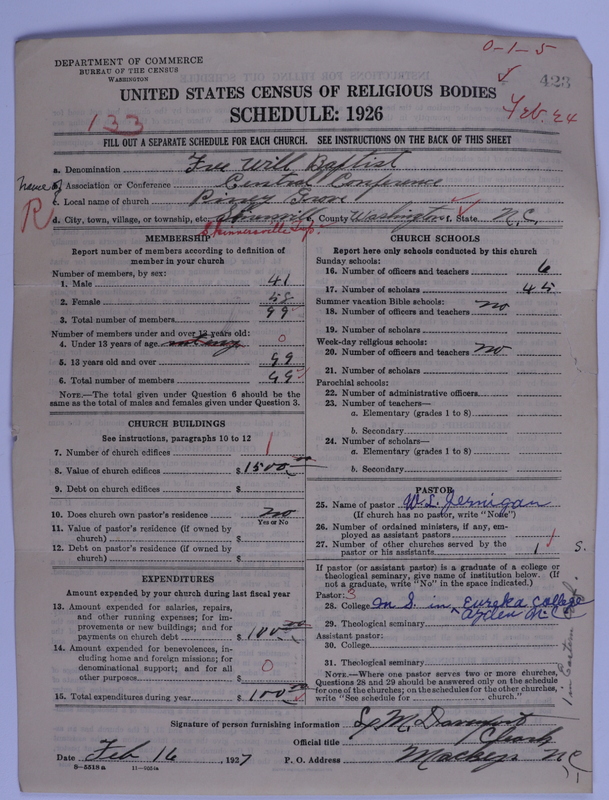 0-1-5
DEPARTMENT OF COMMERCE
BUREAU OF THE CENSUS
WASHINGTON
423
UNITED STATES CENSUS OF RELIGIOUS BODIES
SCHEDULE: 1926
133
Feb. 24
FILL OUT A SEPARATE SCHEDULE FOR EACH CHURCH. SEE INSTRUCTIONS ON THE BACK OF THIS SHEET
a. Denomination Free Will Baptist
Name of
b. Association or Conference Central Conference
R
c. Local name of church Piney Grove
d. City, town, village, or township, etc. e. County Washington f. State N.C.
Skinnersville Twp.
MEMBERSHIP
Report number of members according to definition of
member in your church
Number of members, by sex:
1. Male 41
2. Female 58
3. Total number of members 99
Number of members under and over 13 years old:
4. Under 13 years of age 0
5. 13 years old and over 99
6. Total number of members 99
NOTE.—The total given under Question 6 should be
same as the total of males and females given under Question 3.
CHURCH BUILDINGS
See instructions, paragraphs 10 to 12
7. Number of church edifices 1
8. Value of church edifices $1500.00
9. Debt on church edifices $
10. Does church own pastor's residence no
Yes or No
11. Value of pastor's residence (if owned by
church) $
12. Debt on pastor's residence (if owned by
church) $
EXPENDITURES
Amount expended by your church during last fiscal year
13. Amount expended for salaries, repairs,
and other running expenses; for im-
provements or new buildings; and for
payments on church debt $100.00
14. Amount expended for benevolences, in-
cluding home and foreign missions; for
denominational support; and for all
other purposes $ 0
15. Total expenditures during year $100.00
CHURCH SCHOOLS
Report here only schools conducted by this church
Sunday schools:
16. Number of officers and teachers 6
17. Number of scholars 45
Summer vacation Bible schools:
18. Number of officers and teachers no
19. Number of scholars
Week-day religious schools:
20. Number of officers and teachers no
21. Number of scholars
Parochial schools:
22. Number of administrative officers
23. Number of teachers—
a. Elementary (grades 1 to 8)
b. Secondary
24. Number of scholars—
a. Elementary (grades 1 to 8)
b. Secondary
PASTOR
25. Name of pastor W. L. Jernigan
(If church has no pastor, write "None")
26. Number of ordained ministers, if any, em-
ployed as assistant pastors
27. Number of other churches served by the
pastor or his assistants 1 S.
If pastor (or assistant pastor) is a graduate of a college or
theological seminary, give name of institution below. (If
not a graduate, write "No" in the space indicated.)
Pastor: 3
28. College M S. in Eureka College
29. Theological seminary Ayden N.C.
Assistant pastor:
30. College
31. Theological seminary
NOTE.—Where one pastor serves two or more churches,
Questions 28 and 29 should be answered only on the schedule
for one of the churches; on the schedules for the other churches,
write "See schedule for church."
1 in Eastern
Signature of person furnishing information M. Davenport
Official title Clerk
Date Feb 16, 1927 P. O. Address Mackeys NC
8-5518a 11-9051a